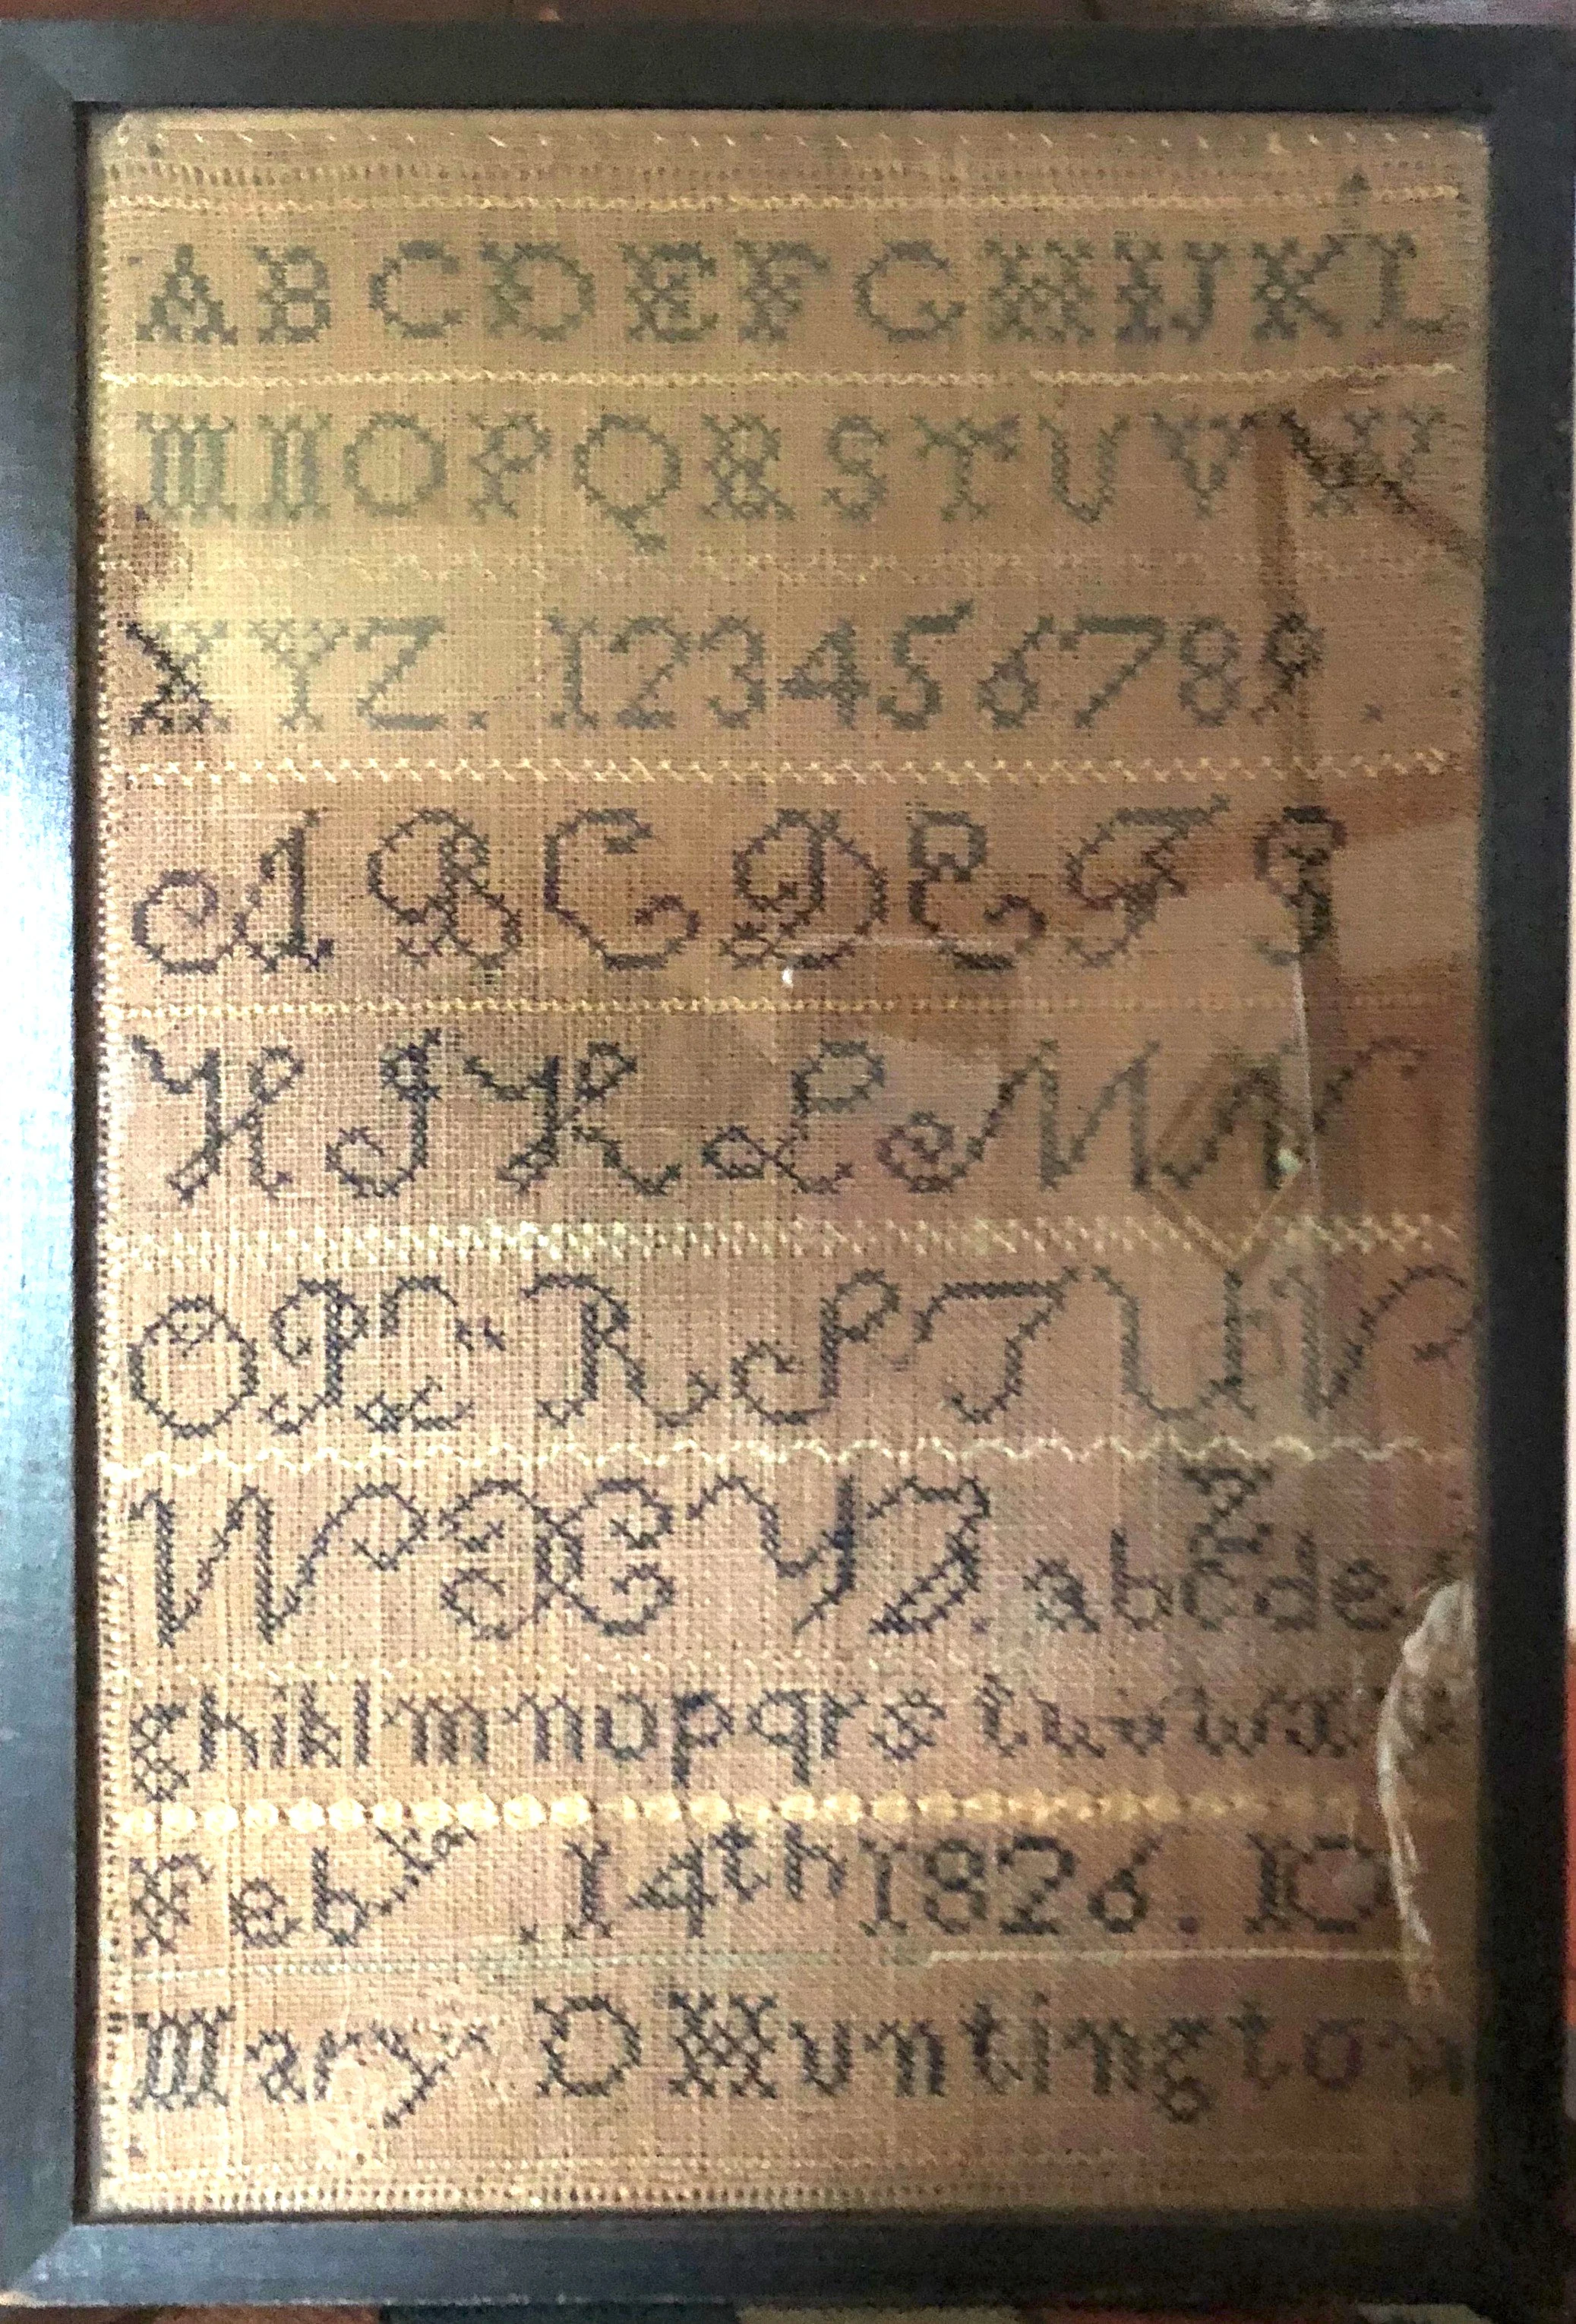 A B C D E F G H I J K L
M N O P Q R S T U V W
X Y Z . 1 2 3 4 5 6 7 8 9 .
A B C D E F G
H I K L M N
O P Q R S T U V
W X Y Z . a b c d e f
g h i k l m n o p q r s t u v w x
Feby . 14th 1826 . 10
Mary D Huntington